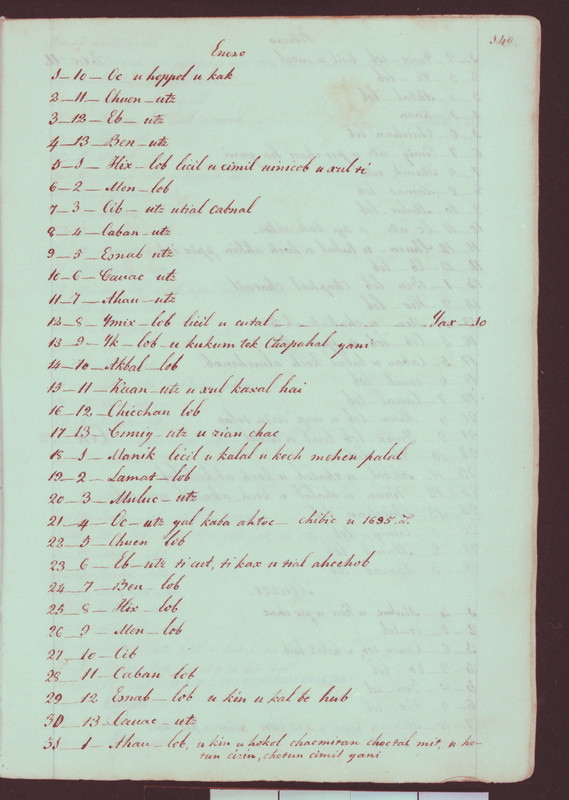 340.
Enero
1 – 10 – Oc u hoppol u kak
2 – 11 – Chuen – utz
3 – 12 – Eb – utz
4 – 13 – Ben – utz
5 – 1 – Hix – lob licil u cimil uinicob u xul ti
6 – 2 – Men – lob
7 – 3 – Cib – utz utial cabnal
8 – 4 – Caban – utz
9 – 5 – Esnab utz
10 – 6 – Cauac utz
11 – 7 – Ahau – utz
12 – 8 – Ymix – lob licil u cutal Yax – 10
13 – 9 – Yk – lob – u kukum tok Chapahal yani
14 – 10 – Akbal – lob
15 – 11 – Kaan – utz u xul kaxal hai
16 – 12 – Chicchan lob
17 – 13 – Cimiy – utz u zian chac
18 – 1 – Manik licil u kalal u koch mehen palal
19 – 2 – Lamat – lob
20 – 3 – Muluc – utz
21 – 4 – Oc – utz yal kaba ahtoc – chibic u 1695 a.
22 – 5 – Chuen lob
23 – 6 – Eb – utz ti cut, ti kax u tial ahcehob
24 – 7 – Ben – lob
25 – 8 – Hix – lob
26 – 9 – Men – lob
27 – 10 – Cib
28 – 11 – Caban lob
29 – 12 Esnab – lob u kin u kal be hub
30 – 13 – Cauac – utz
31 – 1 – Ahau – lob, u kin u hokol chacmitan choctal mit, u ho-
tun cizin, chetun cimil yani